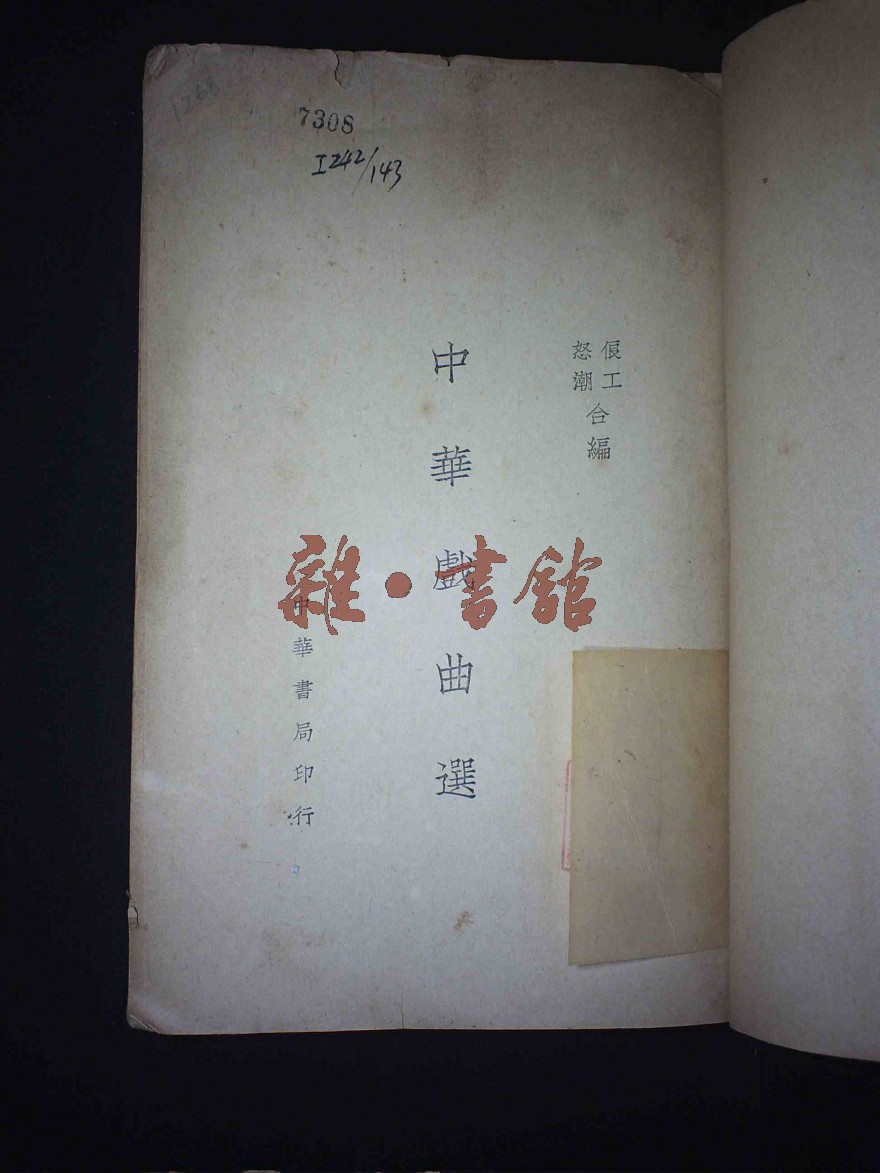 1268
7308
I242/143
俍工
怒潮
合編
中華戲曲選
雜·書館
中華書局印行